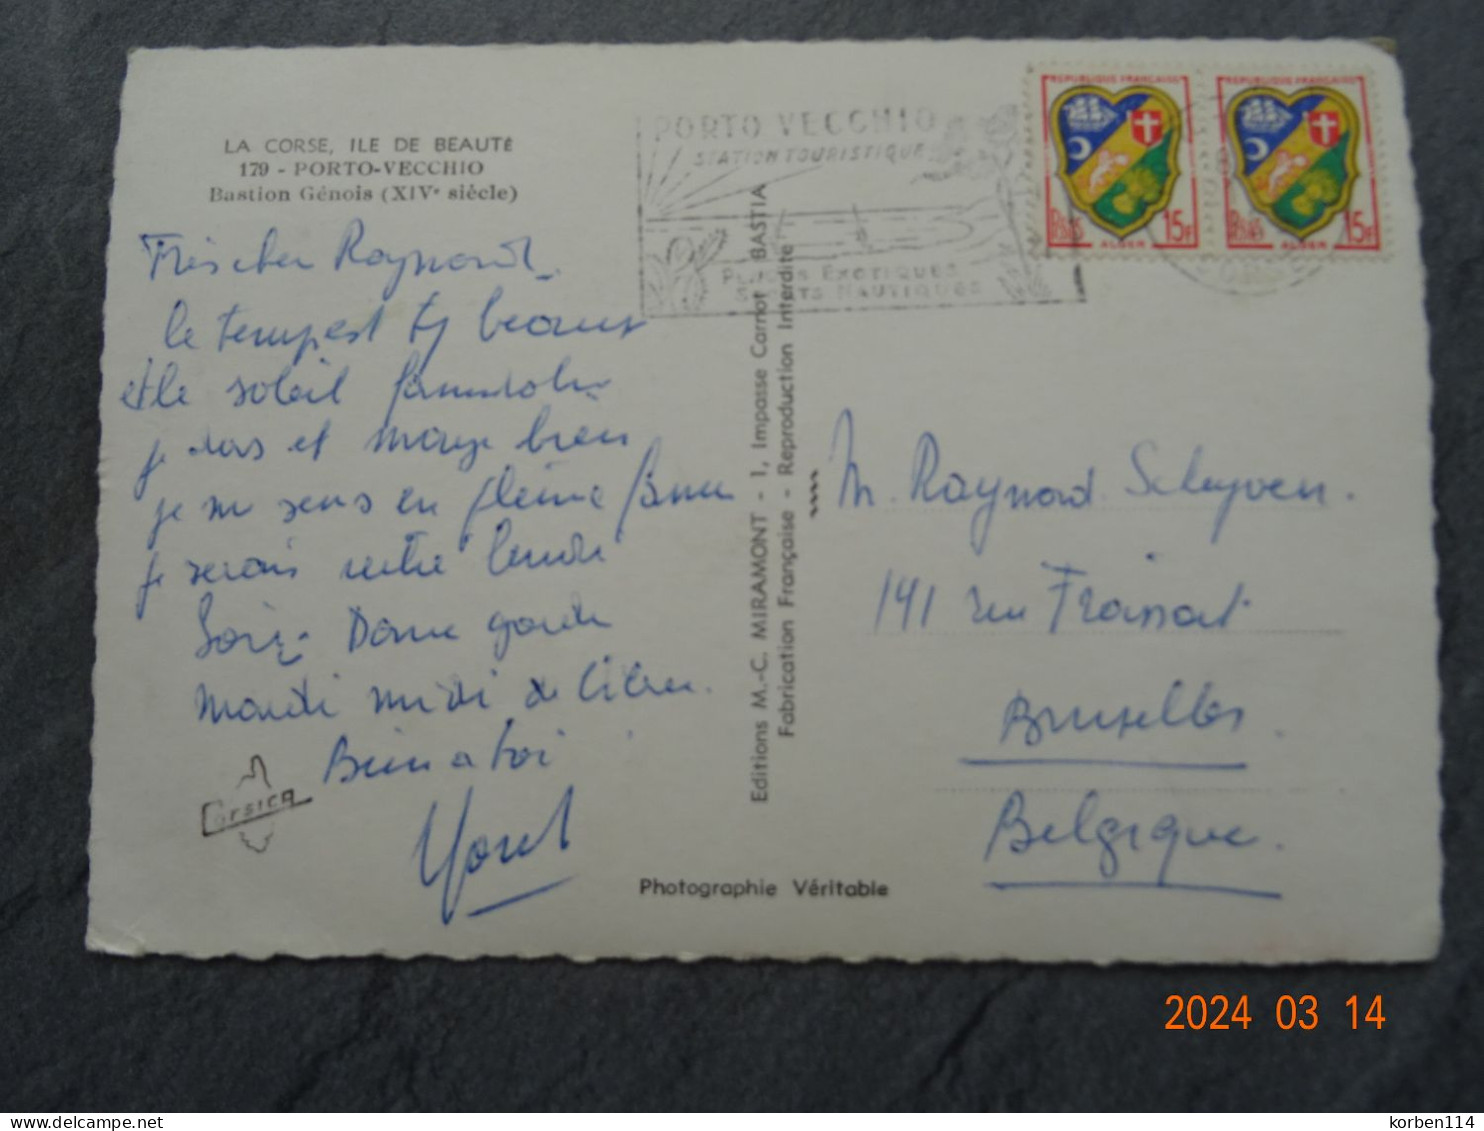 LA CORSE, ILE DE BEAUTÉ
179 - PORTO-VECCHIO
Bastion Génois (XIVe siècle)
Très cher Raymond
le temps est beau
et le soleil
je dors et mange bien
je me sens en pleine forme
je serais
Soir
mardi midi
Bien a toi
Corsica
Editions M.-C. MIRAMONT - 1, Impasse Carnot BASTIA
Fabrication Française - Reproduction Interdite
Photographie Véritable
PORTO VECCHIO
STATION TOURISTIQUE
PLAGES EXOTIQUES
SPORTS NAUTIQUES
REPUBLIQUE FRANÇAISE
Postes 15F
ALGER
REPUBLIQUE FRANÇAISE
Postes 15F
ALGER
M. Raymond Scheyven.
141 rue Froissart
Bruxelles.
Belgique.
2024 03 14
korben114